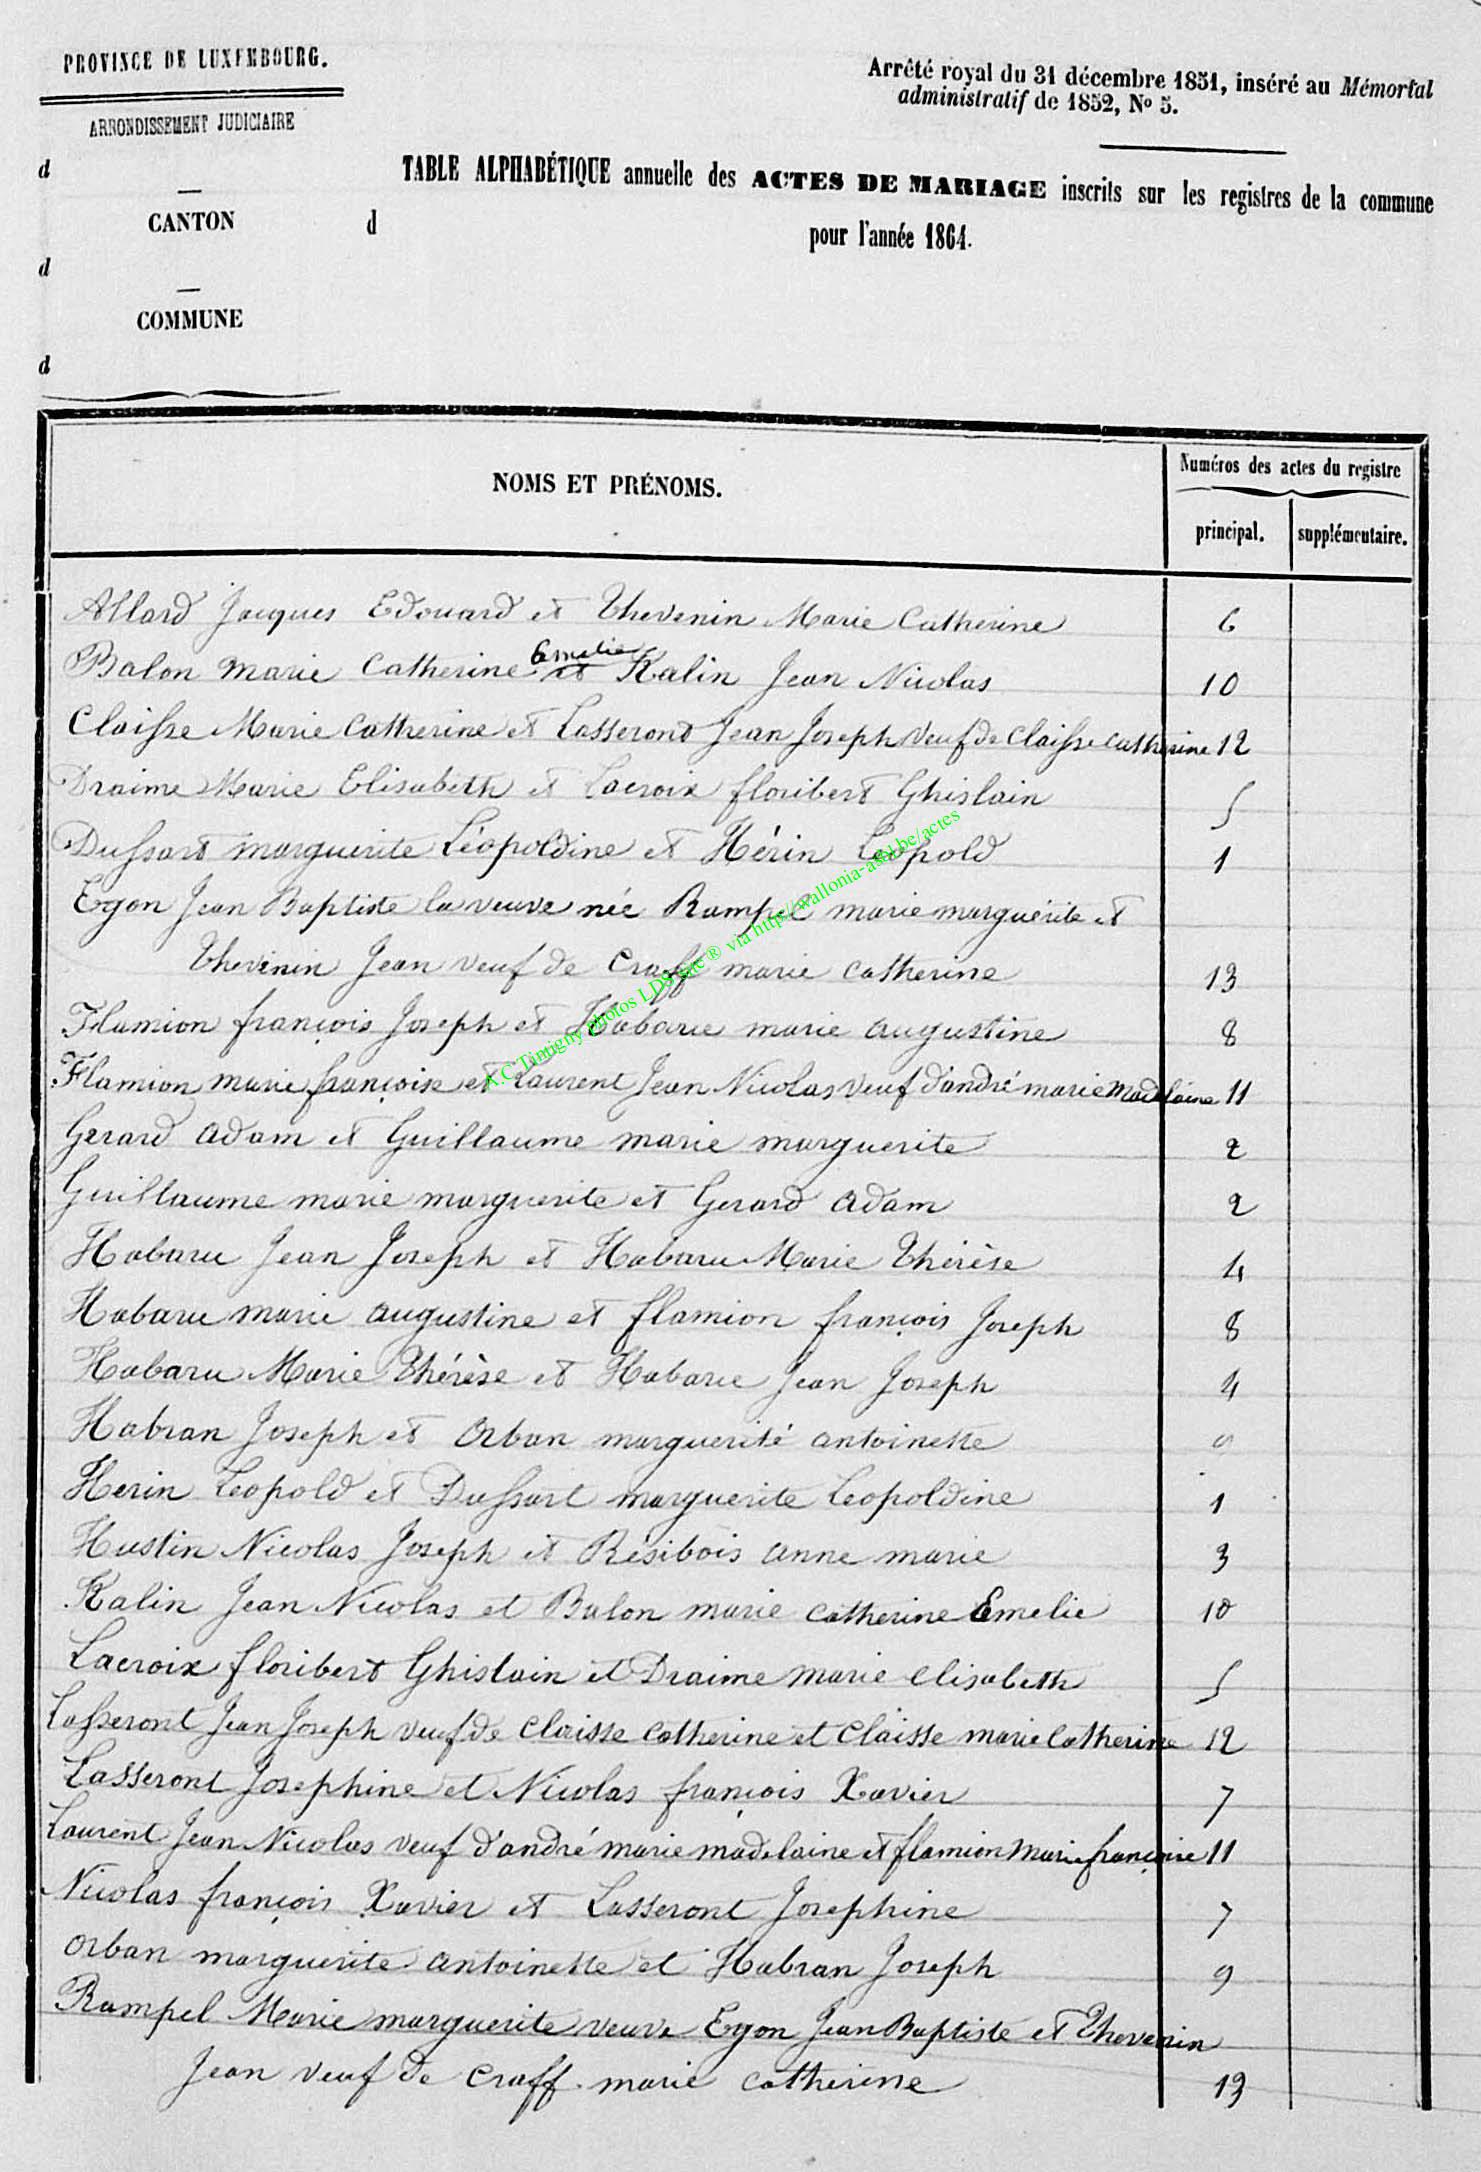 PROVINCE DE LUXEMBOURG.
Arrêté royal du 31 décembre 1851, inséré au Mémorial
administratif de 1852, No 5.
ARRONDISSEMENT JUDICIAIRE
d
TABLE ALPHABÉTIQUE annuelle des ACTES DE MARIAGE inscrits sur les registres de la commune
CANTON
d pour l'année 1864.
d
COMMUNE
d
NOMS ET PRÉNOMS.
Numéros des actes du registre
principal. supplémentaire.
Allard Jacques Edouard et Thevenin Marie Catherine 6
Emelie
Balon marie Catherine et Kalin Jean Nicolas 10
Claisse Marie Catherine et Lasseront Jean Joseph veuf de Claisse Catherine 12
Draime Marie Elisabeth et Lacroix floribert Ghislain 5
Dussart marguerite Léopoldine et Hérin Léopold 1
Egon Jean Baptiste la veuve née Rampel marie marguérite et
Thevenin Jean veuf de Craff marie catherine 13
Flamion françois Joseph et Habaru marie augustine 8
Flamion marie françoise et Laurent Jean Nicolas veuf d'andré marie madelaine 11
Gerard adam et Guillaume marie marguerite 2
Guillaume marie marguerite et Gerard adam 2
Habaru Jean Joseph et Habaru Marie Thérèse 4
Habaru marie augustine et flamion françois Joseph 8
Habaru Marie Thérèse et Habaru Jean Joseph 4
Habran Joseph et Orban marguerité antoinette 9
Herin Leopold et Dussart marguerite Leopoldine 1
Hustin Nicolas Joseph et Résibois anne marie 3
Kalin Jean Nicolas et Balon marie catherine Emelie 10
Lacroix floribert Ghislain et Draime marie elisabeth 5
Lasseront Jean Joseph veuf de Claisse Catherine et Claisse marie Catherine 12
Lasseront Josephine et Nicolas françois Xavier 7
Laurent Jean Nicolas veuf d'andré marie madelaine et flamion Marie françoise 11
Nicolas françois Xavier et Lasseront Josephine 7
Orban marguerite antoinette et Habran Joseph 9
Rampel Marie marguerite veuve Egon Jean Baptiste et Thevenin
Jean veuf de Craff marie catherine 13
A.C Tintigny photos LDS via ® via http://wallonia-asbl.be/actes